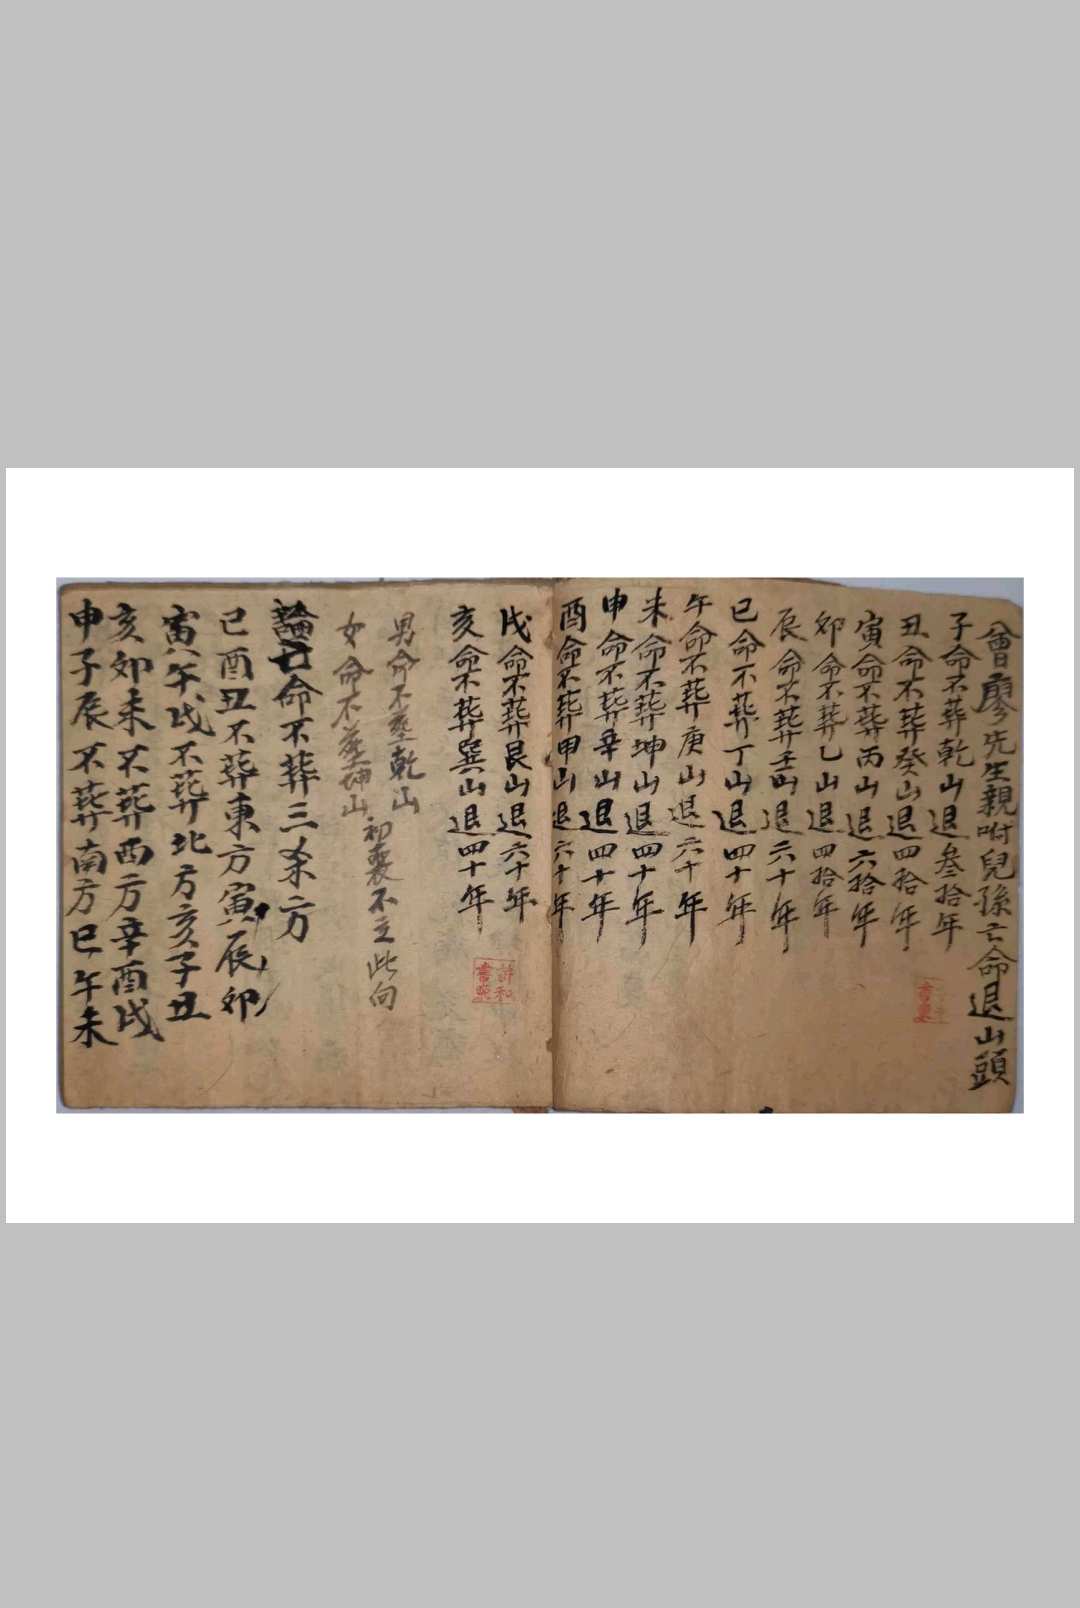 曾廖先生親咐兒孫亡命退山頭
子命不葬乾山退叁拾年
丑命不葬癸山退四拾年
寅命不葬丙山退六拾年
卯命不葬乙山退四拾年
辰命不葬壬山退六十年
巳命不葬丁山退四十年
午命不葬庚山退六十年
未命不葬坤山退四十年
申命不葬辛山退四十年
酉命不葬甲山退六十年
戌命不葬艮山退六十年
亥命不葬巽山退四十年
男命不塟乾山
女命不塟坤山
初喪不立此向
論亡命不葬三杀方
巳酉丑不葬東方寅辰卯
寅午戌不葬北方亥子丑
亥卯未不葬西方辛酉戌
申子辰不葬南方巳午未